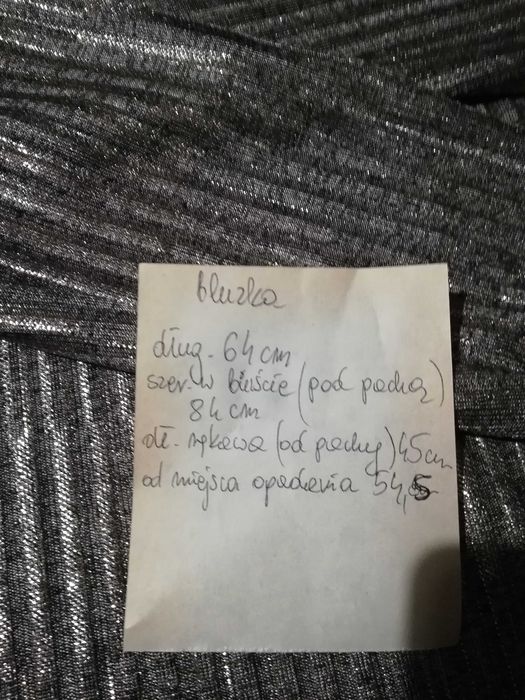 bluzka
dług. 64 cm
szer. w biuście (pod pachą)
84 cm
dł. rękawa (od pachy) 45cm
od miejsca opadania 54,5